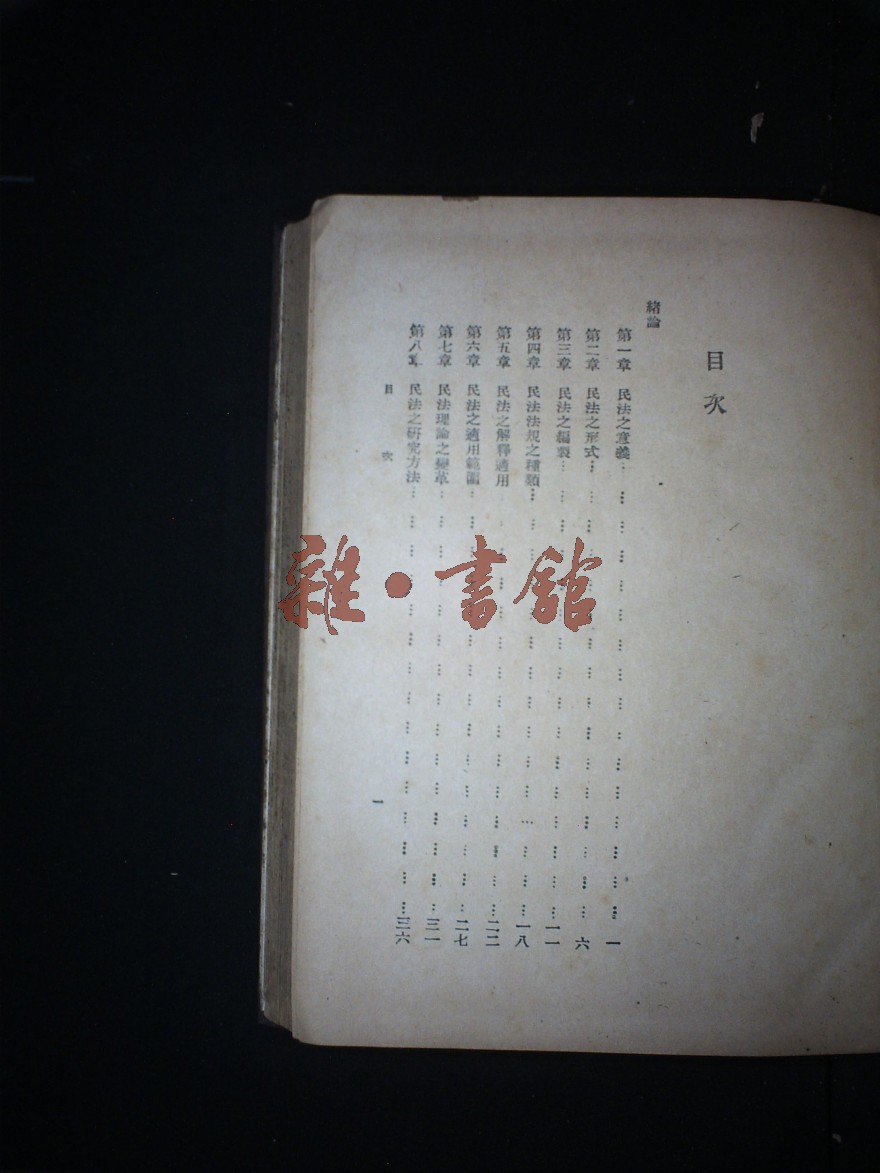 目次
緒論
第一章 民法之意義…………一
第二章 民法之形式…………六
第三章 民法之編製…………一一
第四章 民法法規之種類…………一八
第五章 民法之解釋適用…………二二
第六章 民法之適用範圍…………二七
第七章 民法理論之變革…………三一
第八章 民法之研究方法…………三六
目次
一
雜·書館